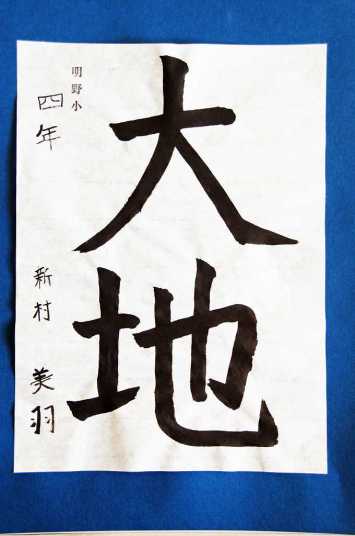 大地
明野小
四年
新村 美羽